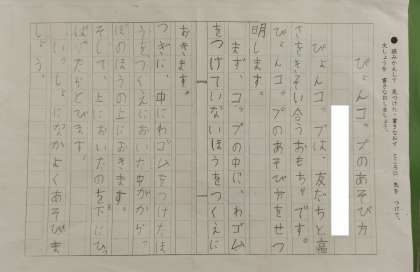 ●読みかえして 見つけた 書きなおす ところに 気を つけて、
文しょうを 書きなおしましょう。
ぴょんコップのあそび方
ぴょんコップは、友だちと高
さをきそい合うおもちゃです。
ぴょんコップのあそび方をせつ
明します。
まず、コップの中に、わゴム
をつけていないほうをつくえに
おきます。
つぎに、中にわゴムをつけたほ
うをつくえにおいた中がからっ
ぽのほうの上におきます。
そして、上においたのを下にひっ
ぱったらとびます。
いっしょになかよくあそびま
しょう。